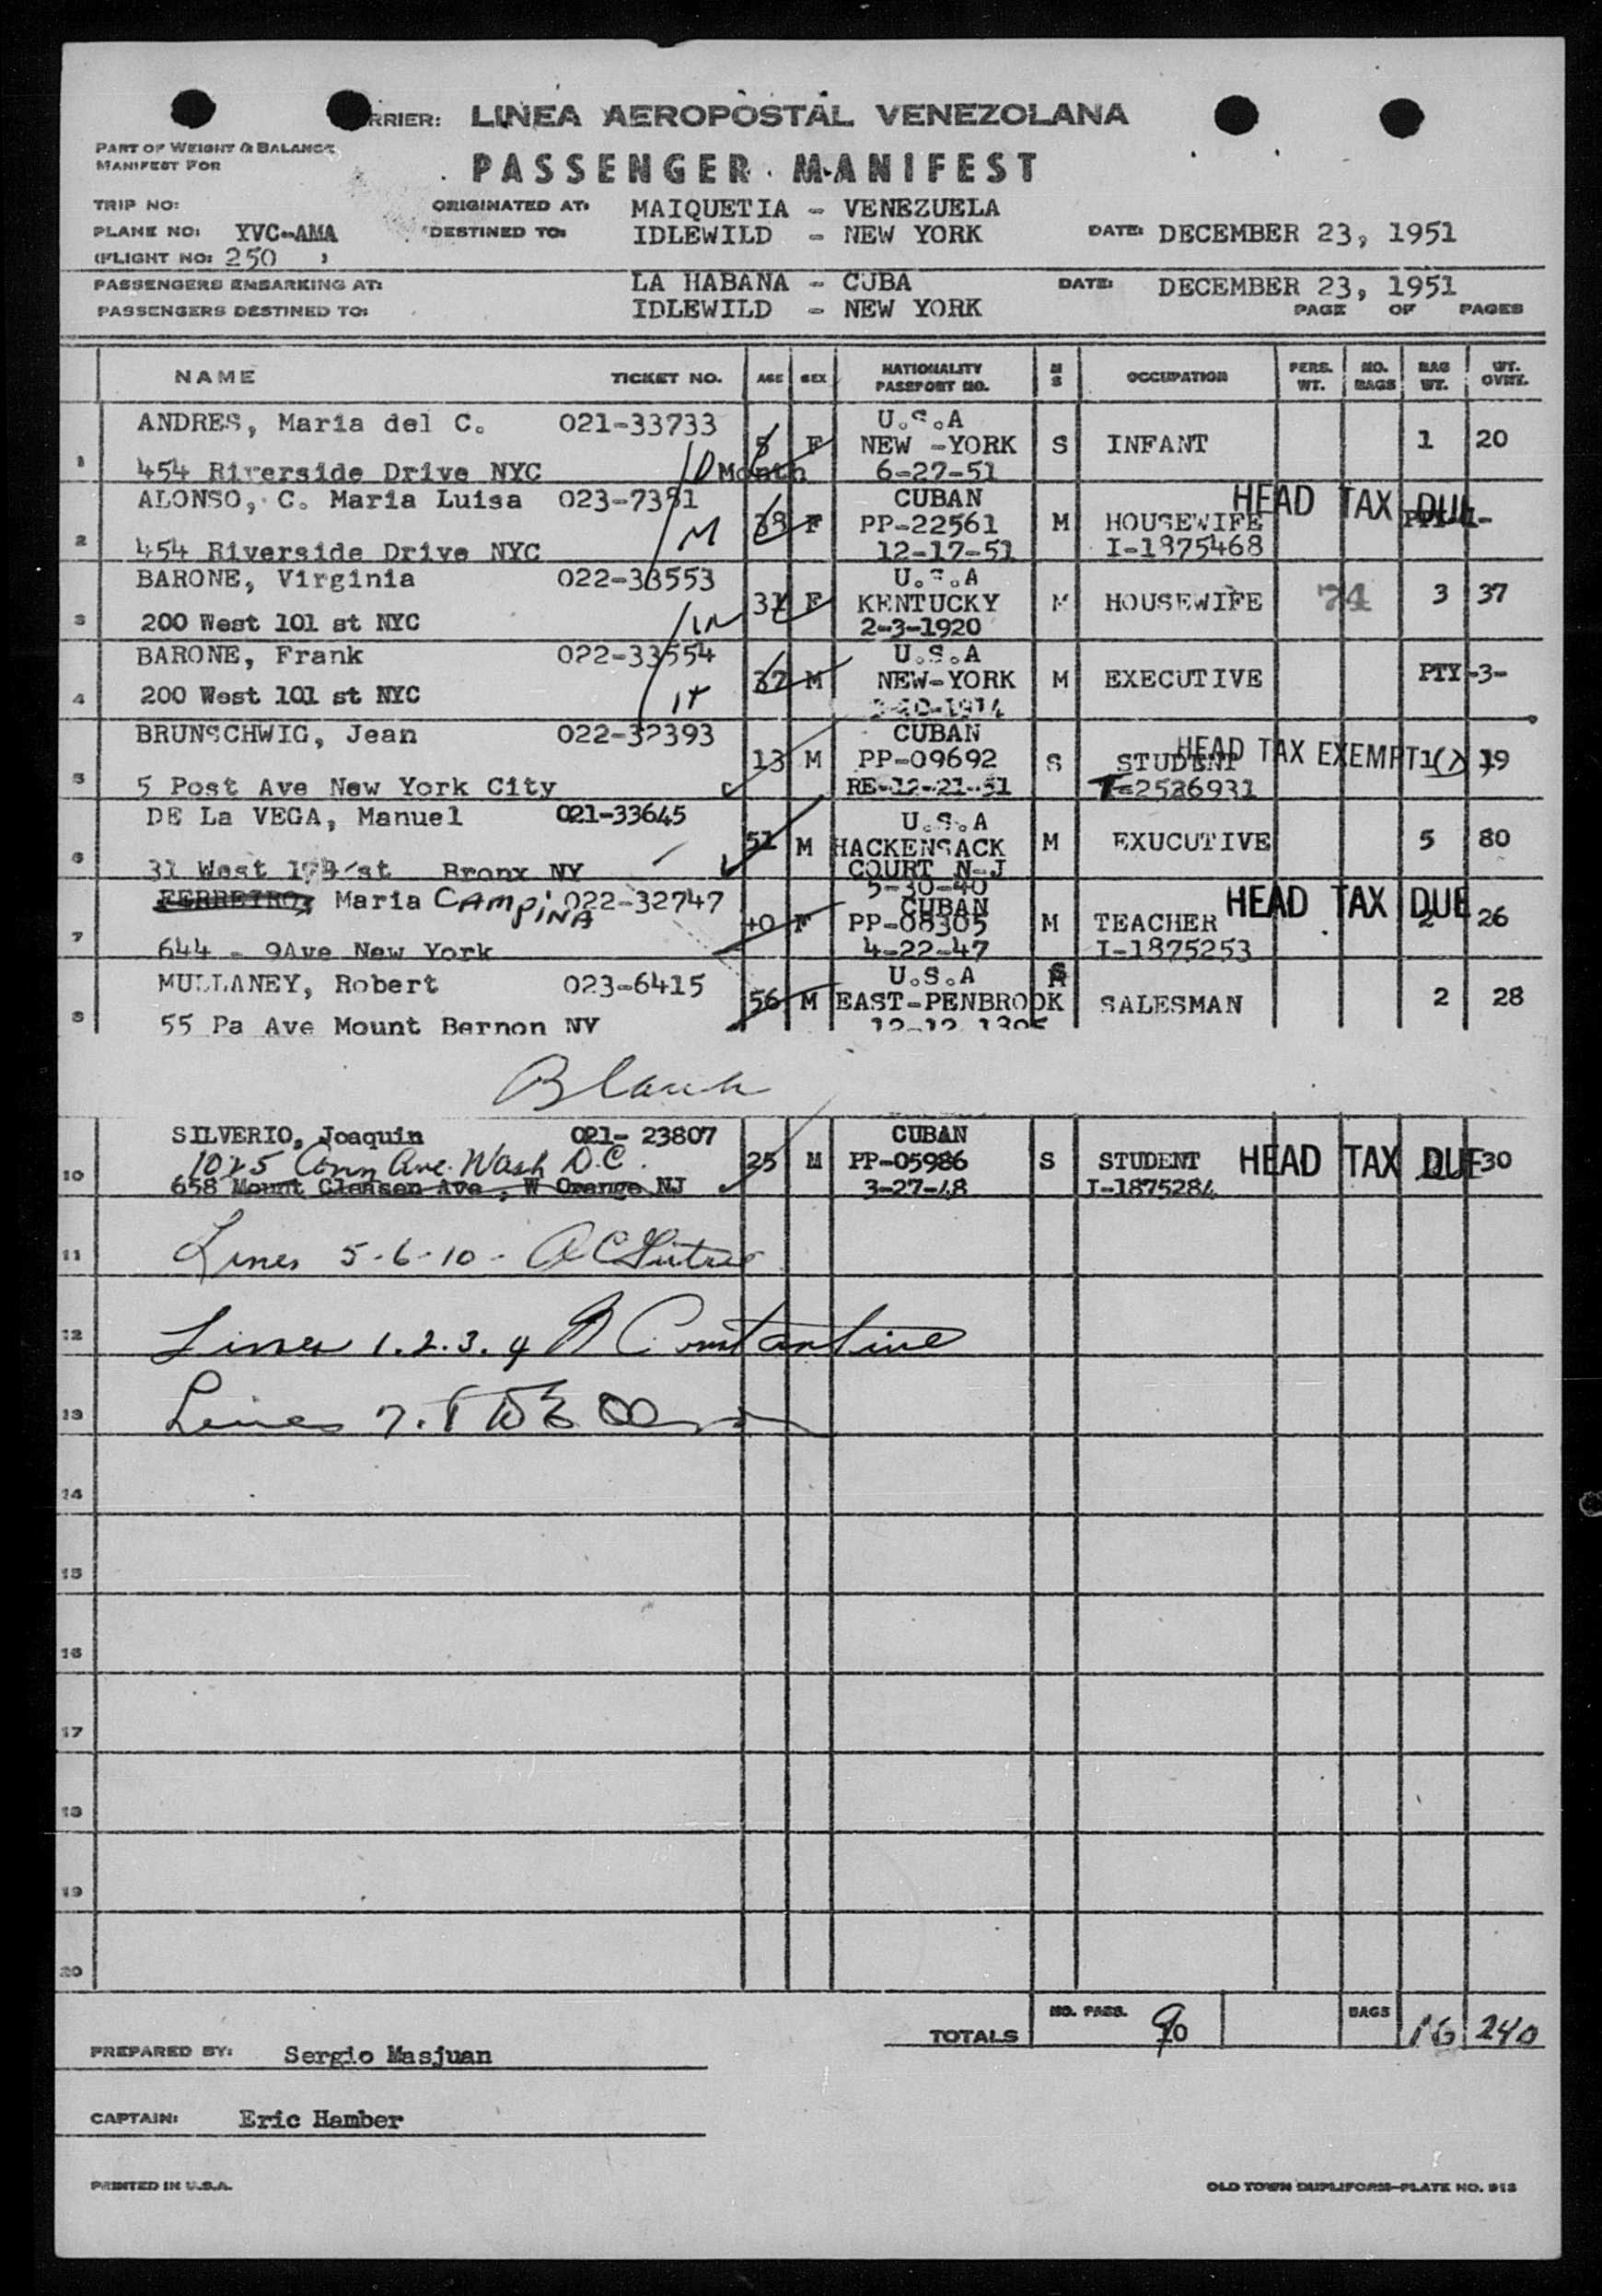 RRIER: LINEA AEROPOSTAL VENEZOLANA
PART OF WEIGHT & BALANCE
MANIFEST FOR
PASSENGER MANIFEST
TRIP NO:
ORIGINATED AT: MAIQUETIA - VENEZUELA
PLANE NO: YVC-AMA
DESTINED TO: IDLEWILD - NEW YORK
DATE: DECEMBER 23, 1951
(FLIGHT NO: 250 )
PASSENGERS EMBARKING AT: LA HABANA - CUBA
DATE: DECEMBER 23, 1951
PASSENGERS DESTINED TO: IDLEWILD - NEW YORK
PAGE OF PAGES
NAME TICKET NO. AGE SEX NATIONALITY PASSPORT NO. M S OCCUPATION PERS. WT. NO. BAGS BAG WT. WT. OVWT.
ANDRES, Maria del C. 021-33733 U.S.A
5 F NEW -YORK S INFANT 1 20
1 454 Riverside Drive NYC 10 Month 6-27-51
ALONSO, C. Maria Luisa 023-7381 CUBAN HEAD TAX DUE
M 38 F PP-22561 M HOUSEWIFE
2 454 Riverside Drive NYC 12-17-51 I-1875468
BARONE, Virginia 022-33553 U.S.A
31 F KENTUCKY M HOUSEWIFE 74 3 37
3 200 West 101 st NYC 2-3-1920
BARONE, Frank 022-33554 U.S.A
37 M NEW-YORK M EXECUTIVE PTY -3-
4 200 West 101 st NYC
BRUNSCHWIG, Jean 022-32393 CUBAN
13 M PP-09692 S STUDENT HEAD TAX EXEMPT 1( ) 19
5 5 Post Ave New York City RE-12-21-51 I-2526931
DE La VEGA, Manuel 021-33645 U.S.A
51 M HACKENSACK M EXUCUTIVE 5 80
6 31 West st Bronx NY COURT N-J
5-30-40
FERREIRO, Maria CAMPINA 022-32747 CUBAN HEAD TAX DUE
40 F PP-08305 M TEACHER 2 26
7 644 - 9Ave New York 4-22-47 I-1875253
MULLANEY, Robert 023-6415 U.S.A S
56 M EAST-PENBROOK SALESMAN 2 28
8 55 Pa Ave Mount Bernon NY
Blank
SILVERIO, Joaquin 021- 23807 CUBAN
1025 Conn Ave. Wash D.C. 25 M PP-05986 S STUDENT HEAD TAX DUE 30
10 658 Mount Cleasen Ave , W Orange NJ 3-27-48 I-1875284
11 Lines 5-6-10-
12 Lines 1.2.3.4 Constantine
13 Lines 7.8
14
15
16
17
18
19
20
TOTALS NO. PASS. 9 BAGS 16 240
PREPARED BY: Sergio Masjuan
CAPTAIN: Eric Hamber
PRINTED IN U.S.A.
OLD TOWN DUPLIFORM-PLATE NO. 913